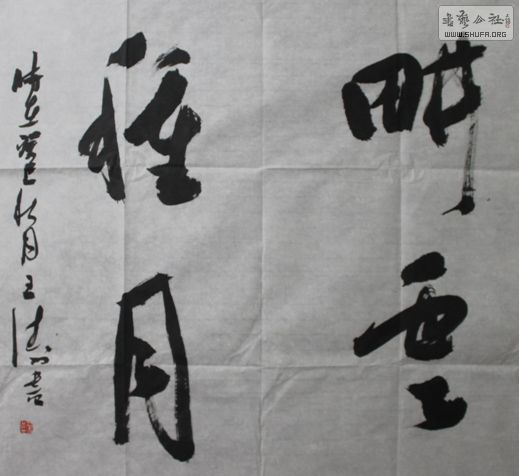 畊雲
種月
時在癸巳秋月王
書藝公社
WWW.SHUFA.ORG